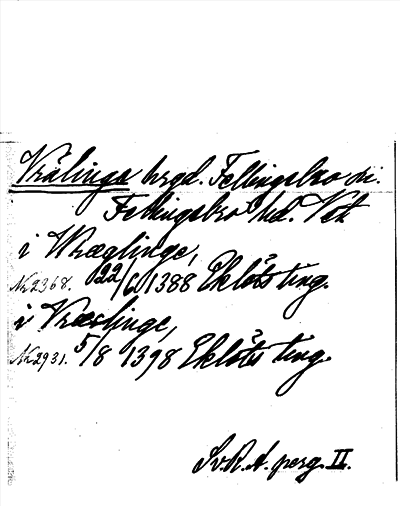 Vrälinge hrgd. Fellingsbro sn.
Fellingsbro hd. Vst
i Wræglinge,
Nr 2368. 22/6 1388 Eklöts ting.
i Vræslinge,
Nr 2931. 5/8 1398 Eklöts ting.
Sv.R.A. perg. II.